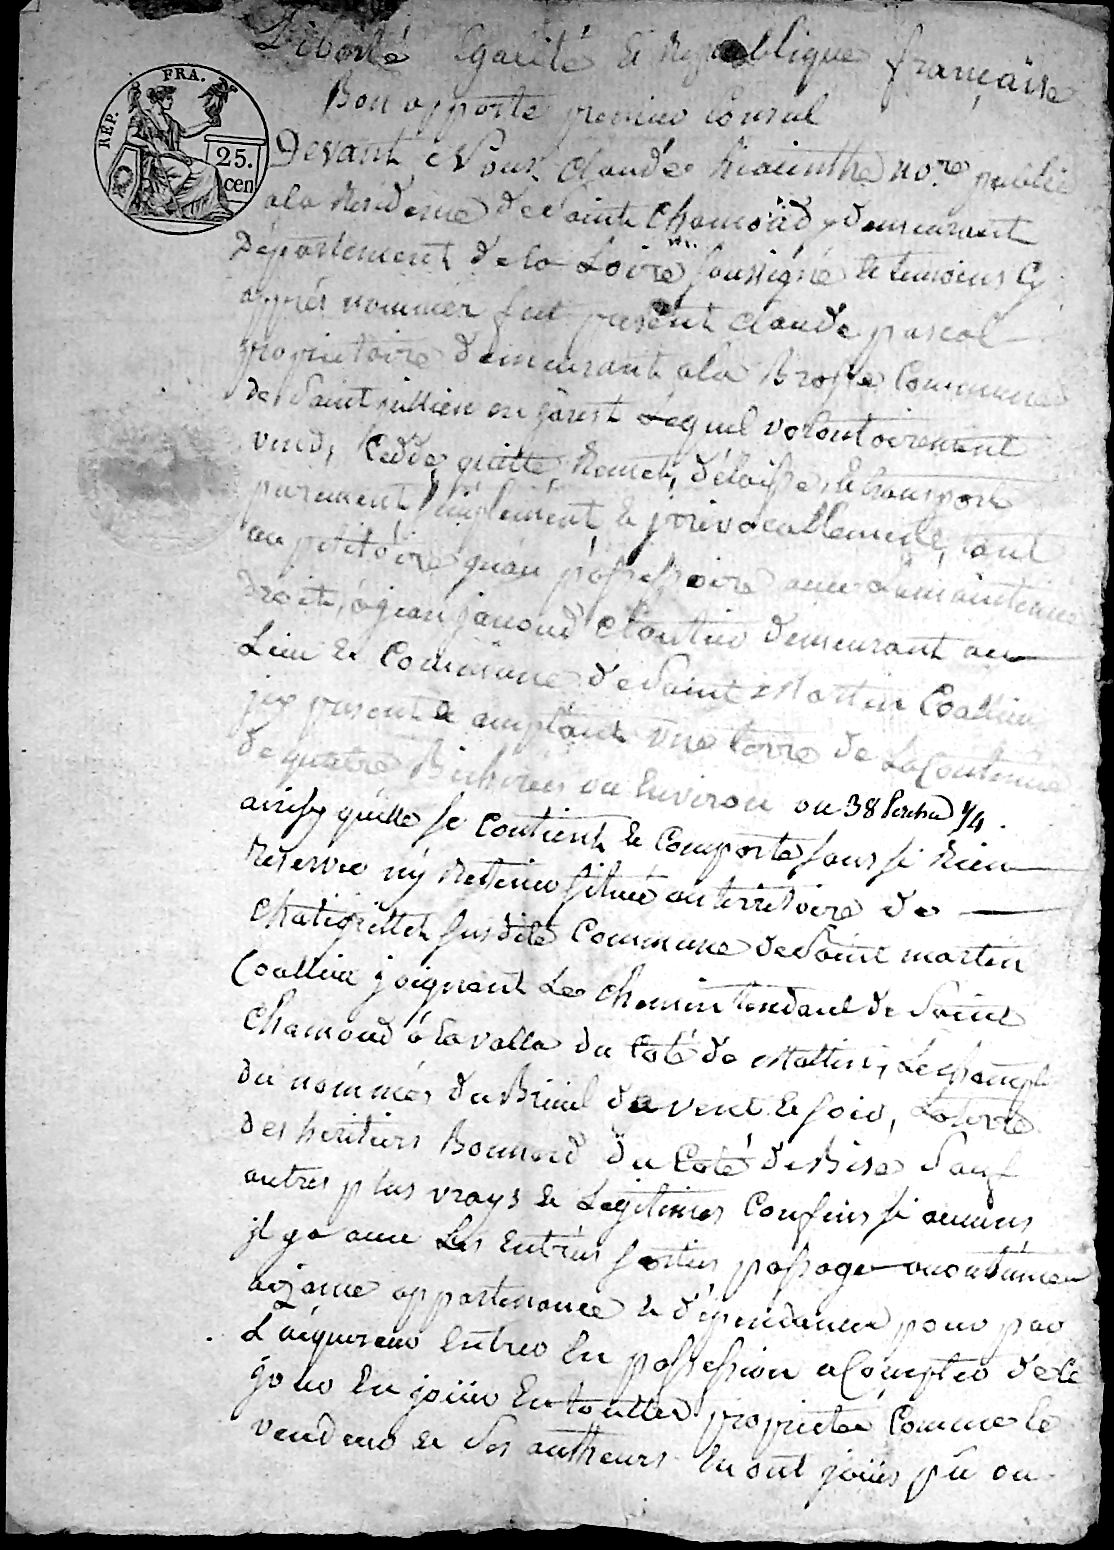 Liberté Egalité Et République française
REP. FRA.
25.
cen
Bonapporte premier Consul
Devant Nous Claude hiacinthe no.re public
a la Residence de Sainte Chamond y demeurant
Département de la Loire soussigné et temoins Cy
apprés nommer fut présent Claude pascal
proprietaire demeurant a la Brosse Commune
de Saint jullien en jarest Lequel volontairement
vend, Cedde, quitte Remet, délaisse, et transporte
purement simplement et jrrévocablement, tant
au pétitoire qu'au possessoire avec
droits, à jean janoud Cloutier demeurant au
Lieu et Commune de Saint Martin Coallieu
jcy present et amptant une terre de La Contenue
de quatre Bicherées ou Environ ou 38 Perches 1/4.
ainsy qu'elle se Contient et Comporte sans si Rien
Reserver ny Retenir située au territoire de
susdite Commune de Saint martin
Coallieu joignant Le chemin tendant de Saint
Chamond à Lavalla du Coté de Mattin, Le champt
du nommés duBreuil de vent et soir, La terre
des heritiers Bonnard du Coté de Bise Sauf
autres plus vrays et Legitimes Confins si aucuns
jl y a avec Les Entrées sorties passage
aizance appartenance et dépendances pour par
L'aquereur Entrer En possession a Compter de Ce
jour En joüir En toutte propriétée Comme le
vendeur et Ses autheurs En ont joüis pû ou